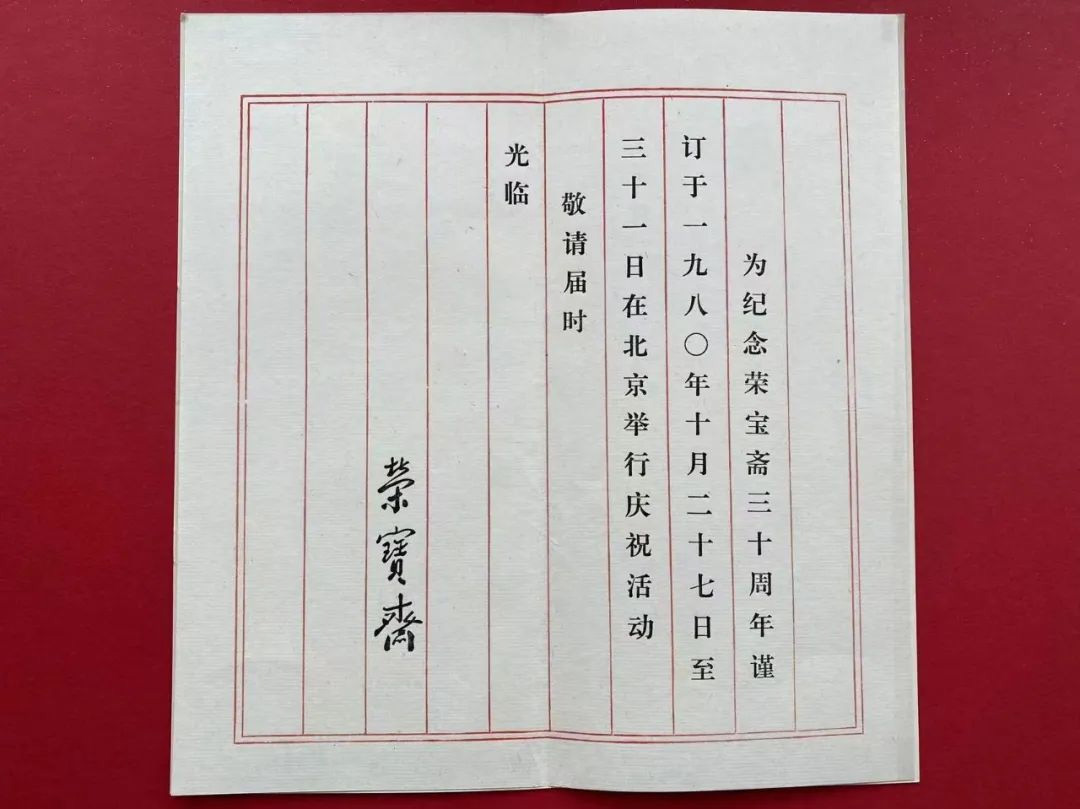 为纪念荣宝斋三十周年谨
订于一九八〇年十月二十七日至
三十一日在北京举行庆祝活动
敬请届时
光临
荣寳齋